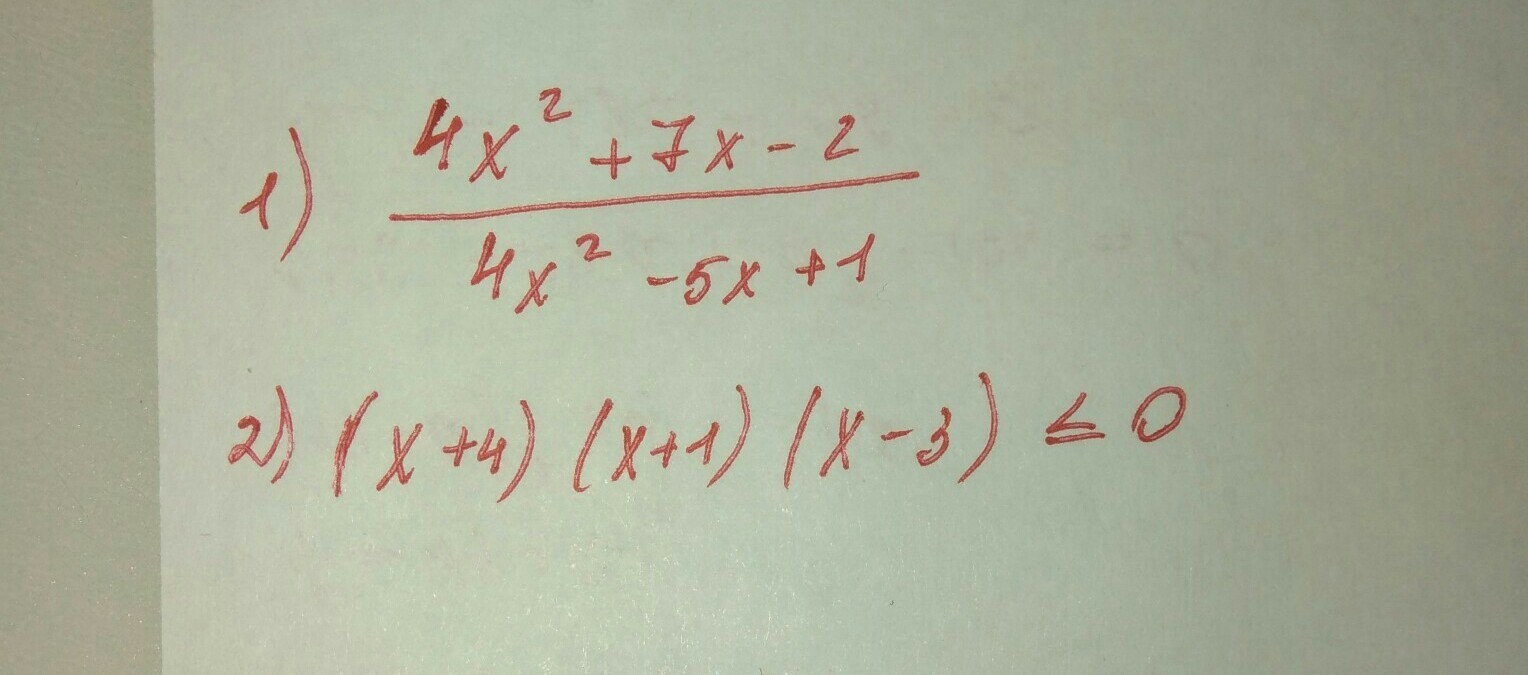 1) \frac{4x^2 + 7x - 2}{4x^2 - 5x + 1}
2) (x+4) (x+1) (x-3) ≤ 0